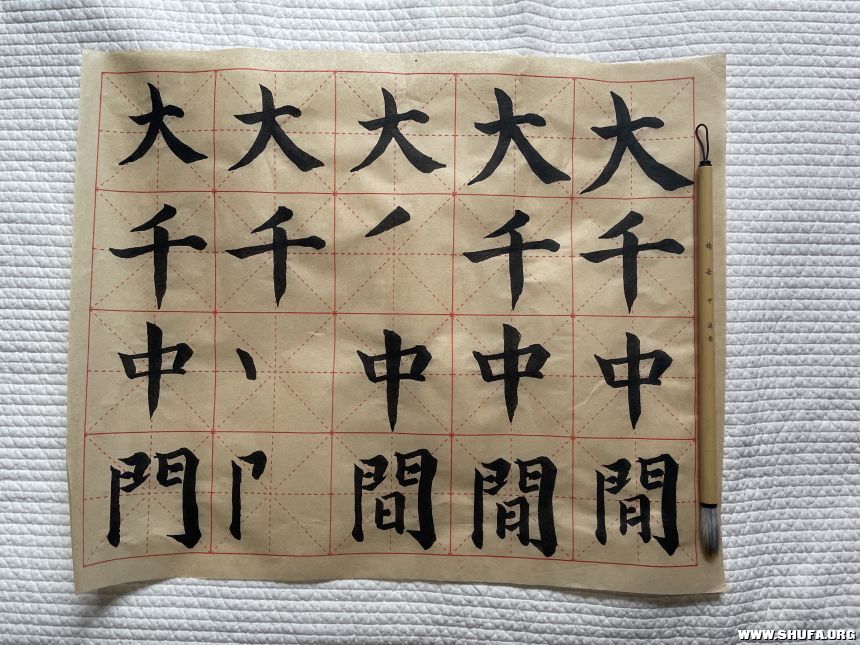 大大大大大
千千丿千千
中丶中中中
門間閒閒
WWW.SHUFA.ORG